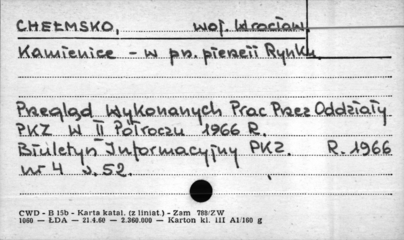 CHEŁMSKO, woj. Wrocław.
Kamienice - w pn. pierzeii Rynku
Przegląd Wykonanych Prac Przez Oddziały
PKZ w II Półroczu 1966 R.
Biuletyn Informacyjny PKZ. R. 1966
nr 4 s. 52.
CWD - B 15b - Karta katal. (z liniat.) - Zam 788/ZW
1060 — ŁDA — 21.4.60 — 2.360.000 — Karton kl. III A1/160 g